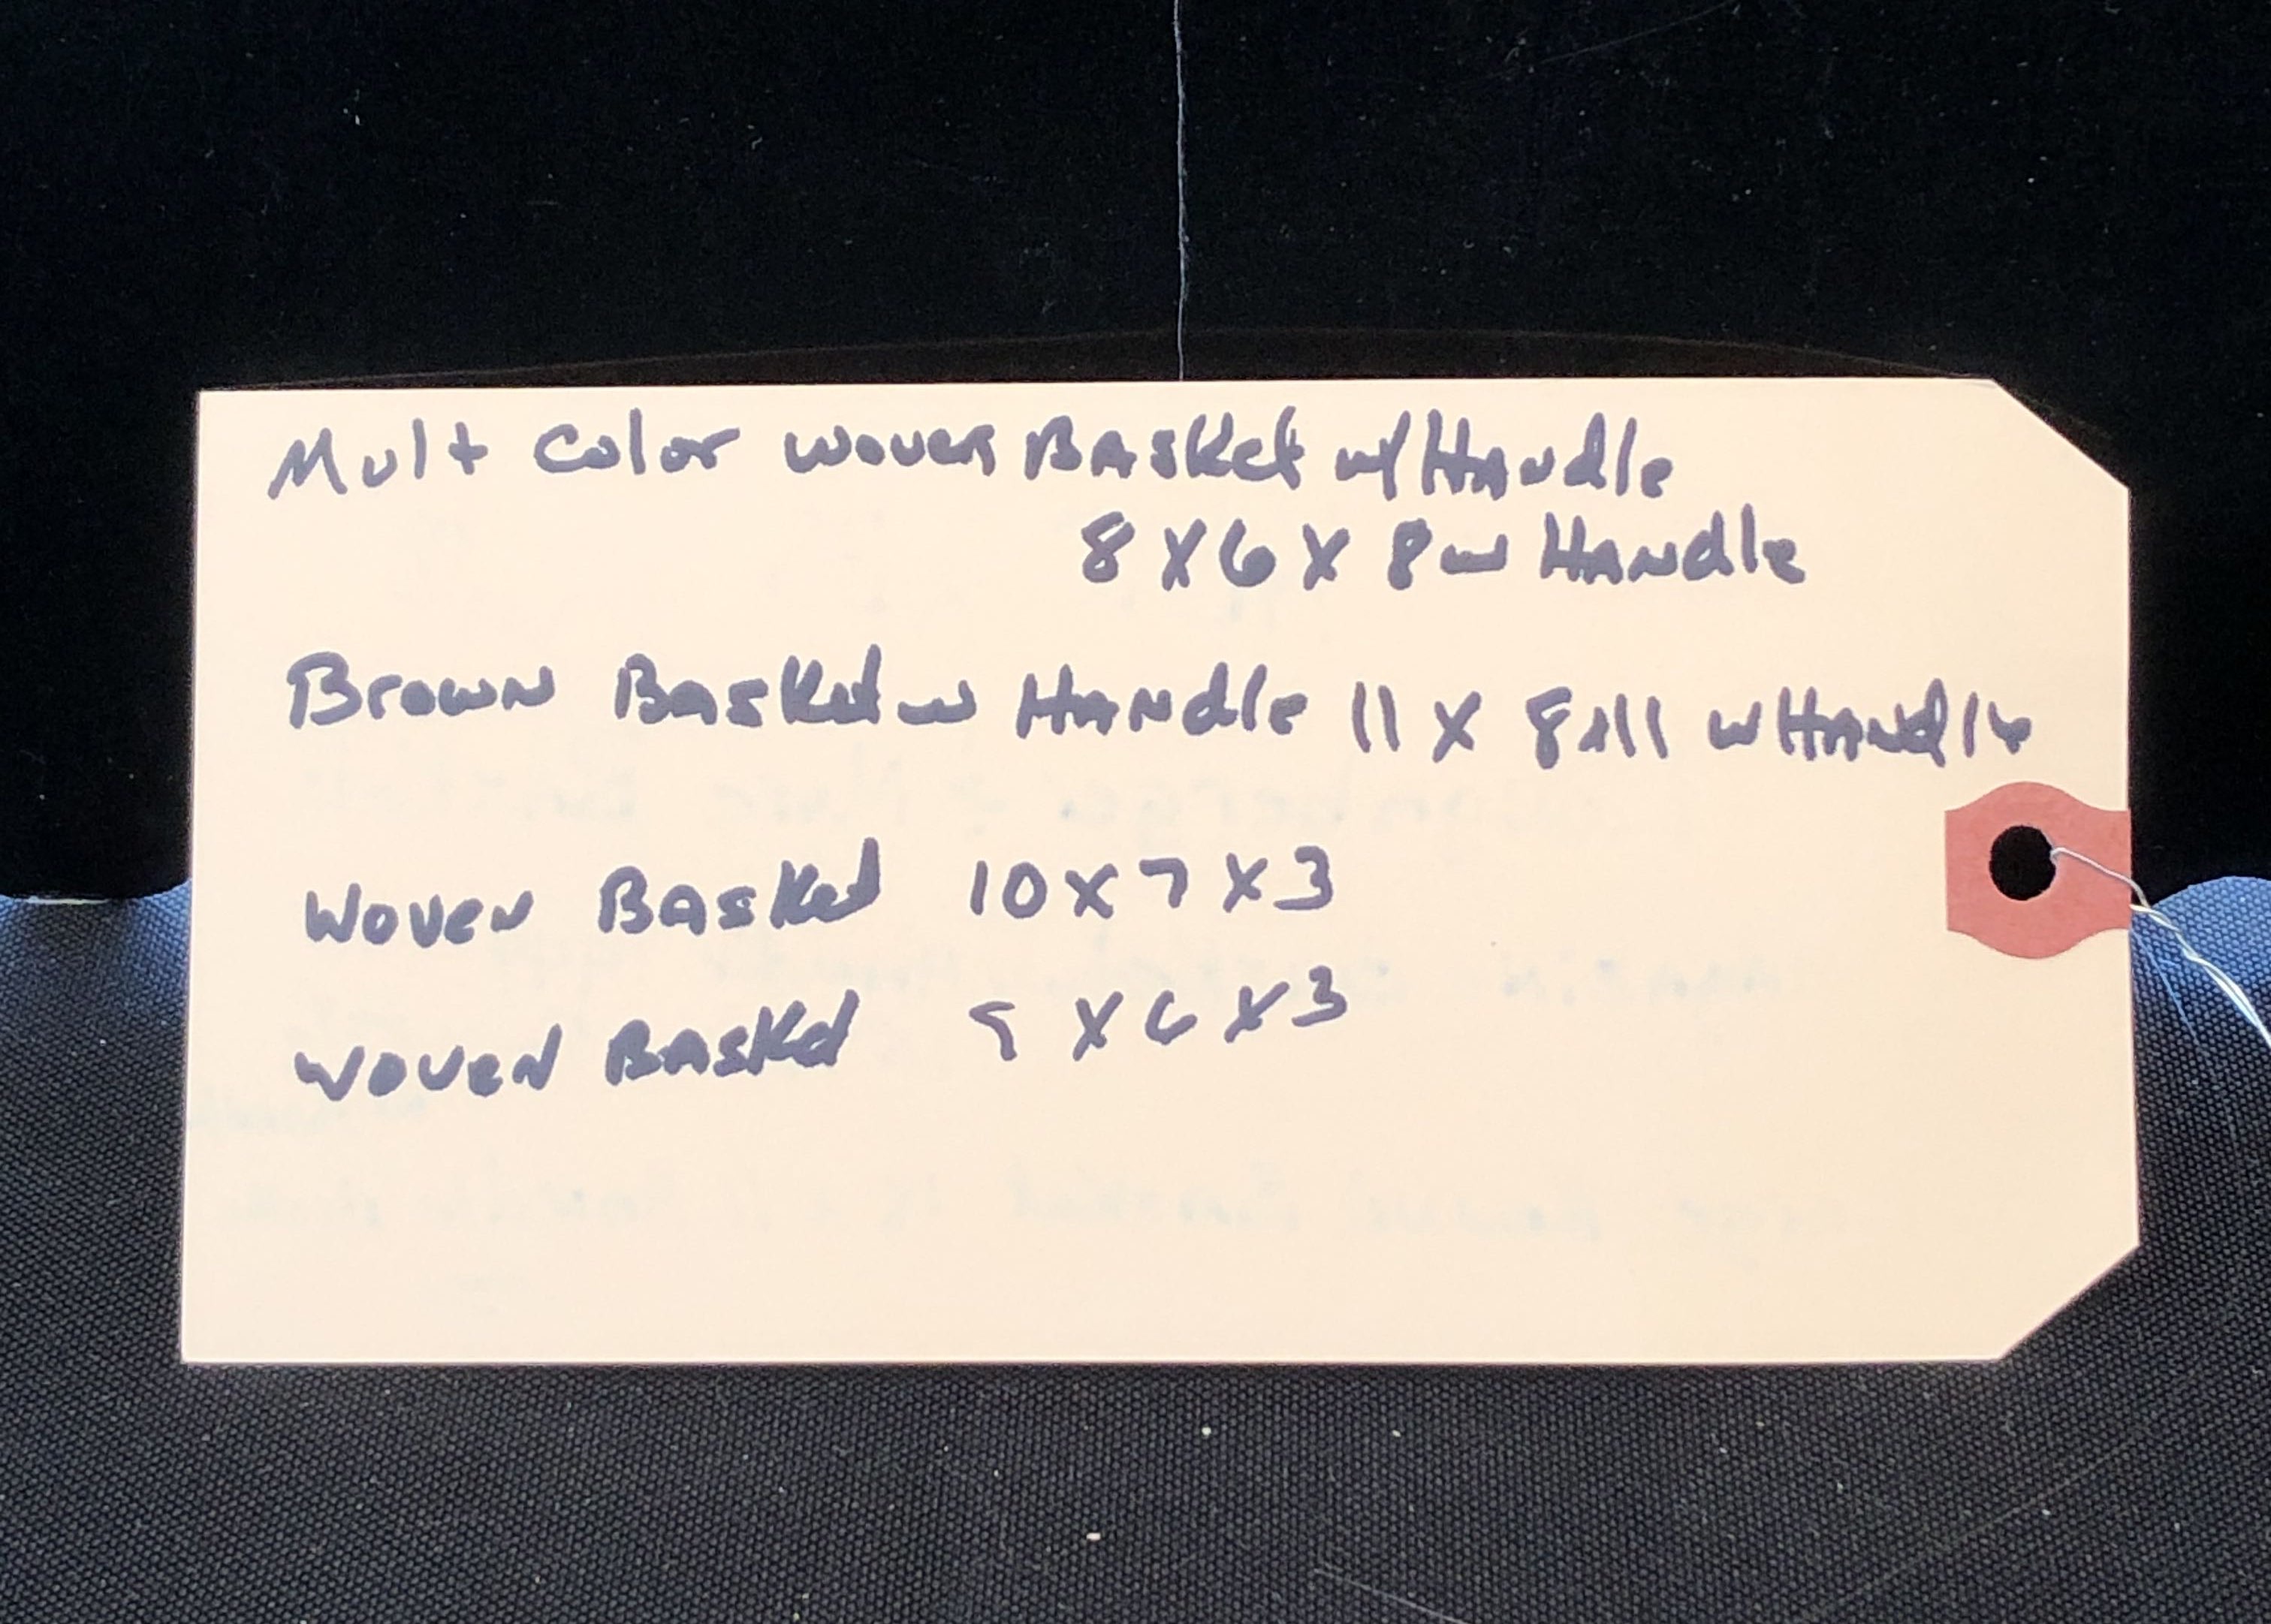 Mult Color Woven Basket w/ Handle
8 X 6 X 8 w Handle
Brown Basket w Handle 11 X 8 x 11 w Handle
Woven Basket 10 X 7 X 3
Woven Basket 9 X 6 X 3